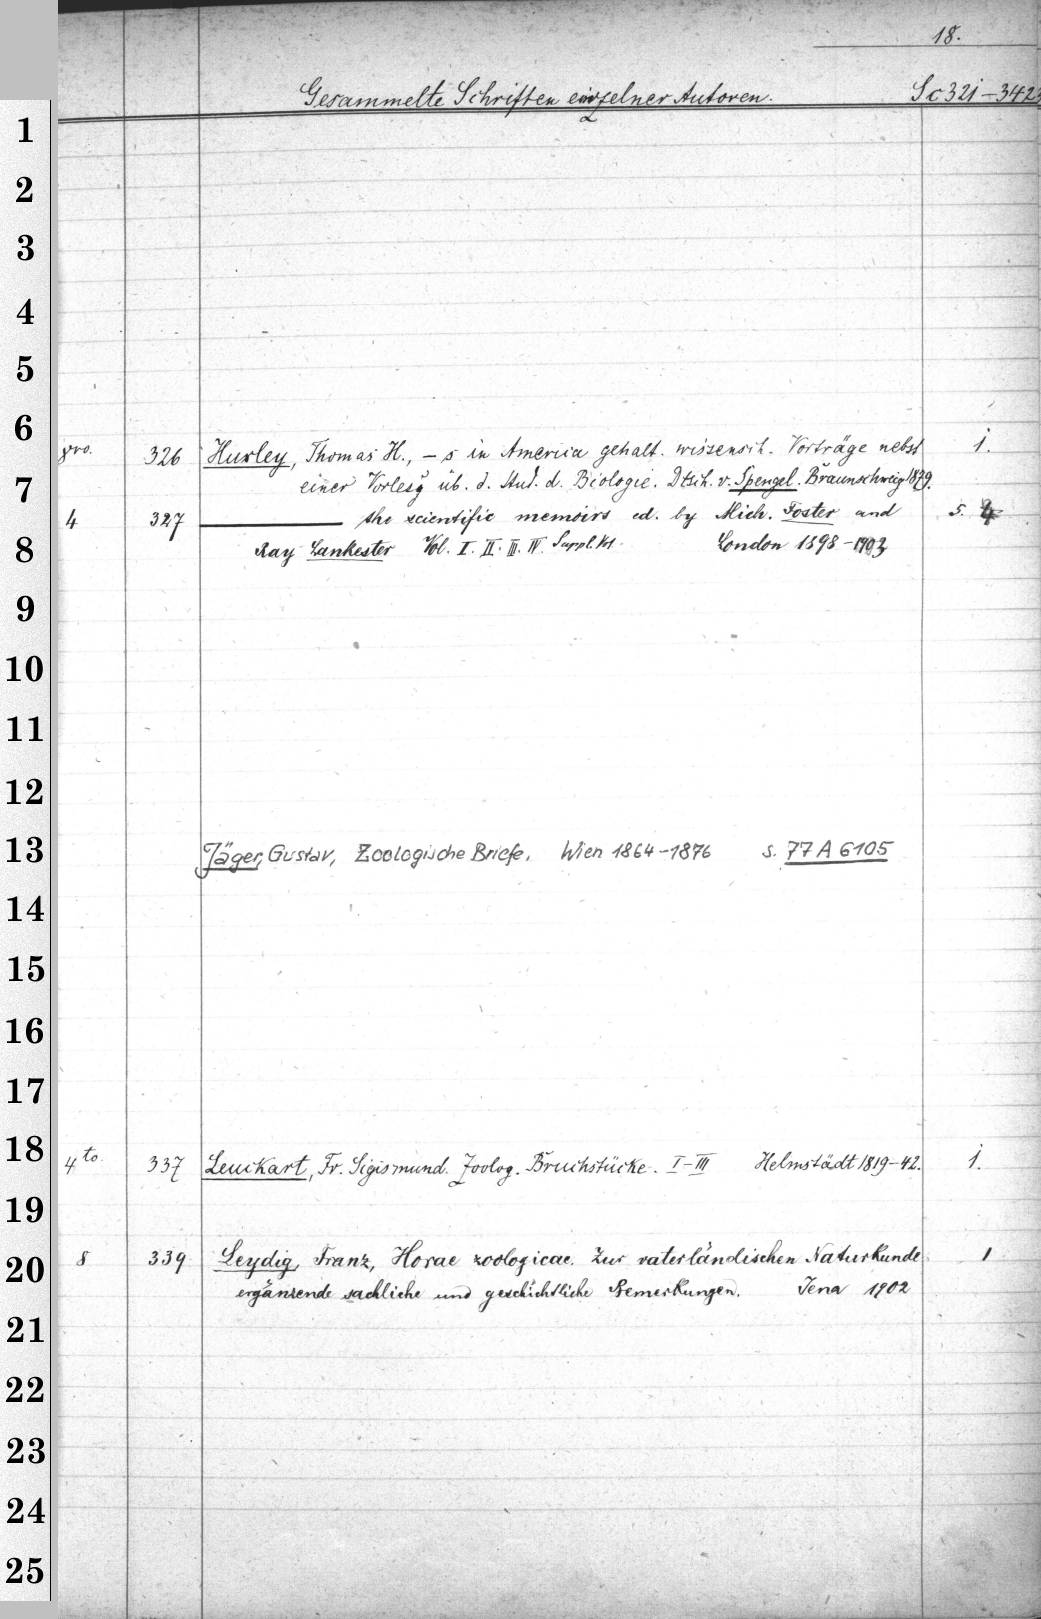 18.
Gesammelte Schriften einzelner Autoren. Sc 321-342
1
2
3
4
5
6
8vo. 326 Huxley, Thomas H., – s in America gehalt. wissensch. Vorträge nebst 1.
7 einer Vorlesg üb. d. Stud. d. Biologie. Dtsch. v. Spengel. Braunschweig 1879.
4 327 the scientific memoirs ed. by Mich. Foster and 5.
8 Ray Lankester Vol. I. II. III. IV. Suppl. Vol. London 1898-1903
9
10
11
12
13 Jäger, Gustav, Zoologische Briefe. Wien 1864-1876 s. 77 A 6105
14
15
16
17
18 4to. 337 Leuckart, Fr. Sigismund. Zoolog. Bruchstücke. I-III Helmstädt 1819-42. 1.
19
20 8 339 Leydig, Franz, Horae zoologicae. Zur vaterländischen Naturkunde 1
ergänzende sachliche und geschichtliche Bemerkungen. Jena 1902
21
22
23
24
25